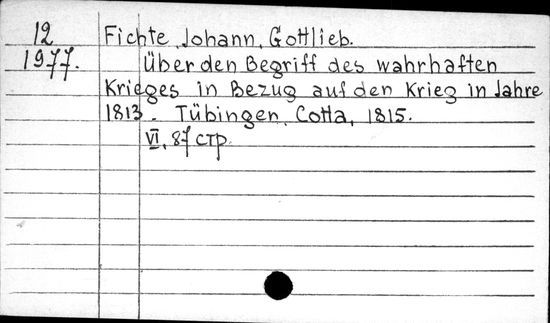 12 Fichte, Johann, Gottlieb.
1977. Über den Begriff des wahrhaften
Krieges in Bezug auf den Krieg in Jahre
1813. Tübingen, Cotta, 1815.
VI, 87 стр.